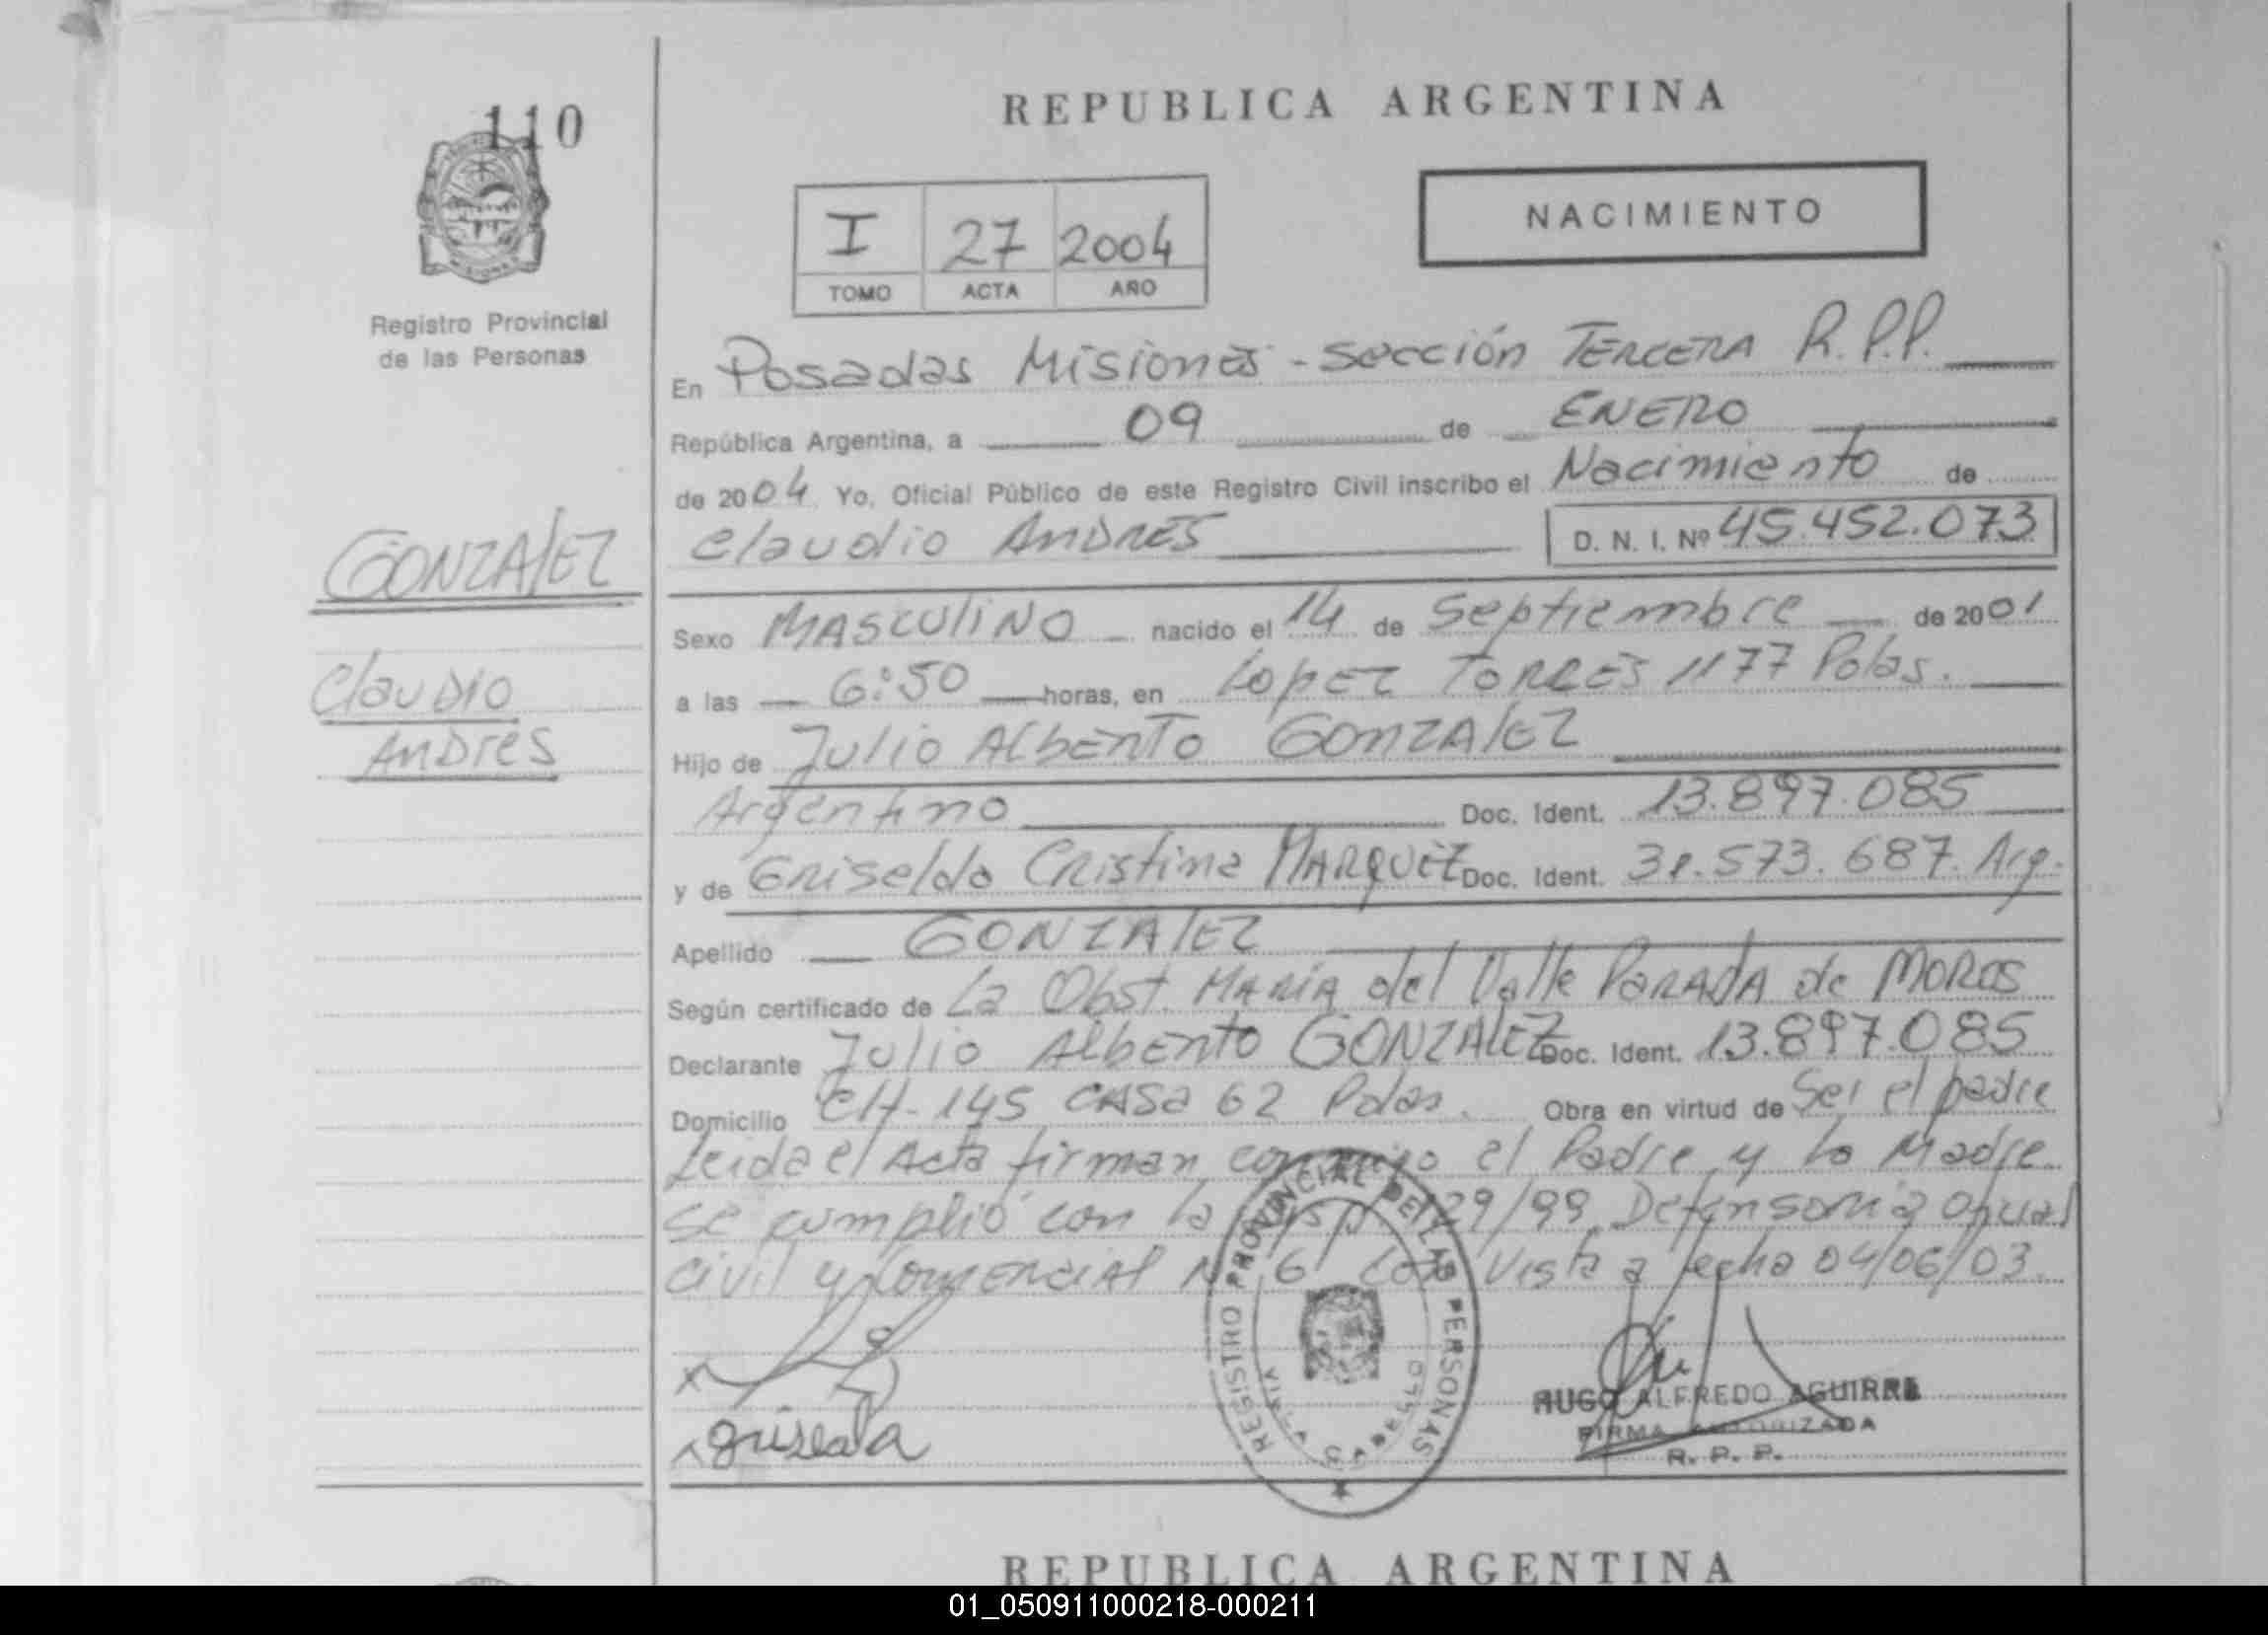 110
REPUBLICA ARGENTINA
MISIONES
Registro Provincial
de las Personas
I 27 2004
TOMO ACTA AÑO
NACIMIENTO
En Posadas Misiones - Sección TERCERA R.P.P.
República Argentina, a 09 de ENERO
de 2004 Yo, Oficial Público de este Registro Civil inscribo el Nacimiento de
GONZALEZ
Claudio ANDRES
D. N. I. Nº 45.452.073
Sexo MASCULINO nacido el 14 de Septiembre de 2001
Claudio
Andres
a las 6:50 horas, en Lopez TORRES 1177 Pdas.
Hijo de Julio Alberto GONZALEZ
Argentino Doc. Ident. 13.897.085
y de Griselda Cristina MARQUEZ Doc. Ident. 31.573.687. Arg.
Apellido GONZALEZ
Según certificado de La Obst. MARIA del Valle PARADA de MOROS
Declarante Julio Alberto GONZALEZ Doc. Ident. 13.897.085
Domicilio CH-145 CASA 62 Pdas. Obra en virtud de Ser el padre
Leida el Acta firman conmigo el Padre y la Madre
se cumplió con la Disp. 129/99 Defensoria Oficial
Civil y Comercial Nº 6 Con Vista a fecha 04/06/03.
REGISTRO PROVINCIAL DE LAS PERSONAS
VILLA CABELLO
Griselda
HUGO ALFREDO AGUIRRE
FIRMA AUTORIZADA
R. P. P.
REPUBLICA ARGENTINA
01_050911000218-000211